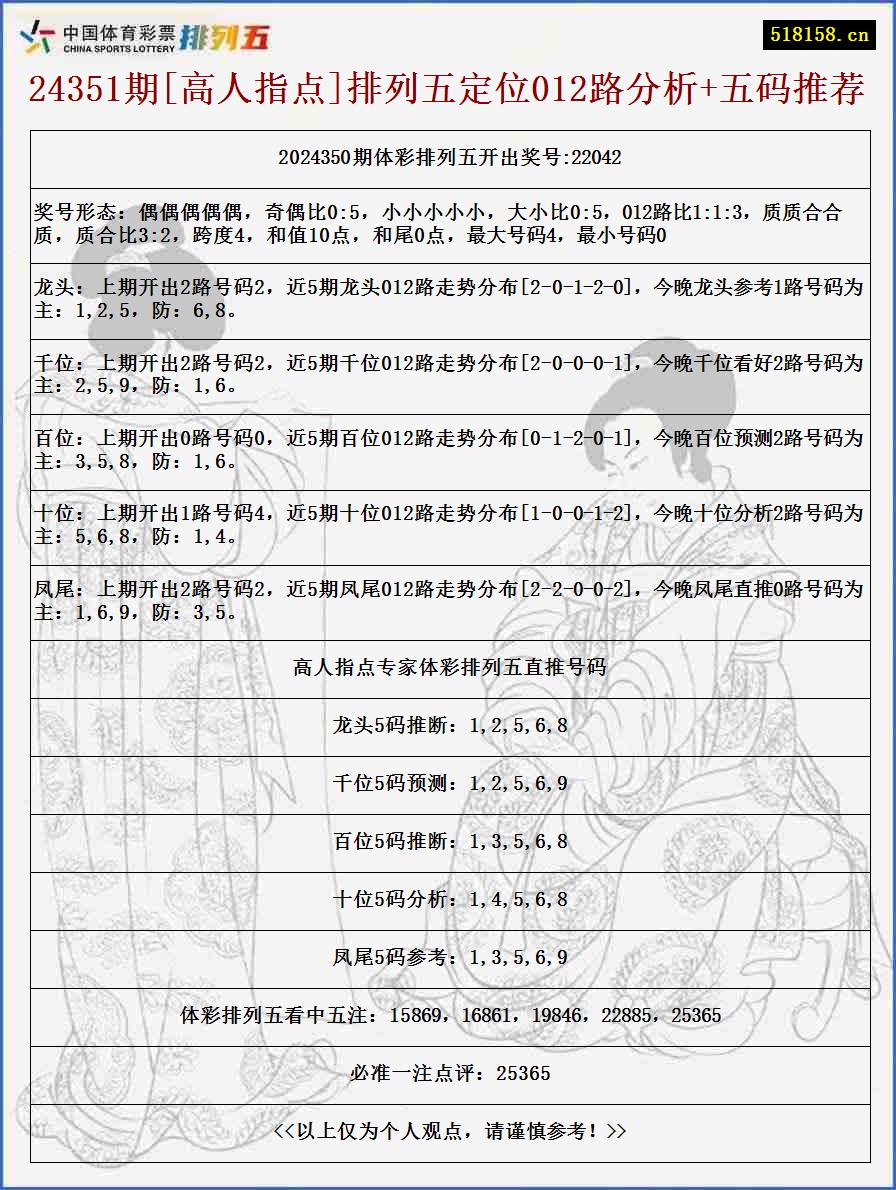 中国体育彩票
CHINA SPORTS LOTTERY
排列五
518158.cn
24351期[高人指点]排列五定位012路分析+五码推荐
2024350期体彩排列五开出奖号:22042
奖号形态：偶偶偶偶偶，奇偶比0:5，小小小小小，大小比0:5，012路比1:1:3，质质合合
质，质合比3:2，跨度4，和值10点，和尾0点，最大号码4，最小号码0
龙头：上期开出2路号码2，近5期龙头012路走势分布[2-0-1-2-0]，今晚龙头参考1路号码为
主：1,2,5，防：6,8。
千位：上期开出2路号码2，近5期千位012路走势分布[2-0-0-0-1]，今晚千位看好2路号码为
主：2,5,9，防：1,6。
百位：上期开出0路号码0，近5期百位012路走势分布[0-1-2-0-1]，今晚百位预测2路号码为
主：3,5,8，防：1,6。
十位：上期开出1路号码4，近5期十位012路走势分布[1-0-0-1-2]，今晚十位分析2路号码为
主：5,6,8，防：1,4。
凤尾：上期开出2路号码2，近5期凤尾012路走势分布[2-2-0-0-2]，今晚凤尾直推0路号码为
主：1,6,9，防：3,5。
高人指点专家体彩排列五直推号码
龙头5码推断：1,2,5,6,8
千位5码预测：1,2,5,6,9
百位5码推断：1,3,5,6,8
十位5码分析：1,4,5,6,8
凤尾5码参考：1,3,5,6,9
体彩排列五看中五注：15869，16861，19846，22885，25365
必准一注点评：25365
<<以上仅为个人观点，请谨慎参考！>>